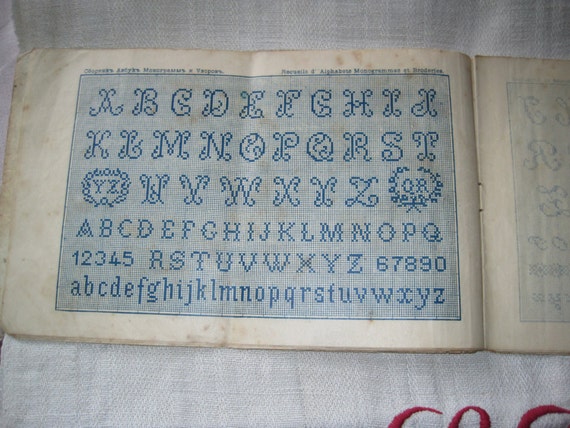 Сборникъ Азбукъ Монограммъ и Узоровъ. Recueils d' Alphabets Monogrammes et Broderies.
A B C D E F G H I J
K L M N O P Q R S T
YZ U V W X Y Z QR
ABCDEFGHIJKLMNOPQ
12345 RSTUVWXYZ 67890
abcdefghijklmnopqrstuvwxyz